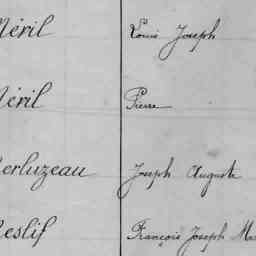 Méril Louis Joseph
Méril Pierre
Merluzeau Joseph Auguste
Meslif François Joseph